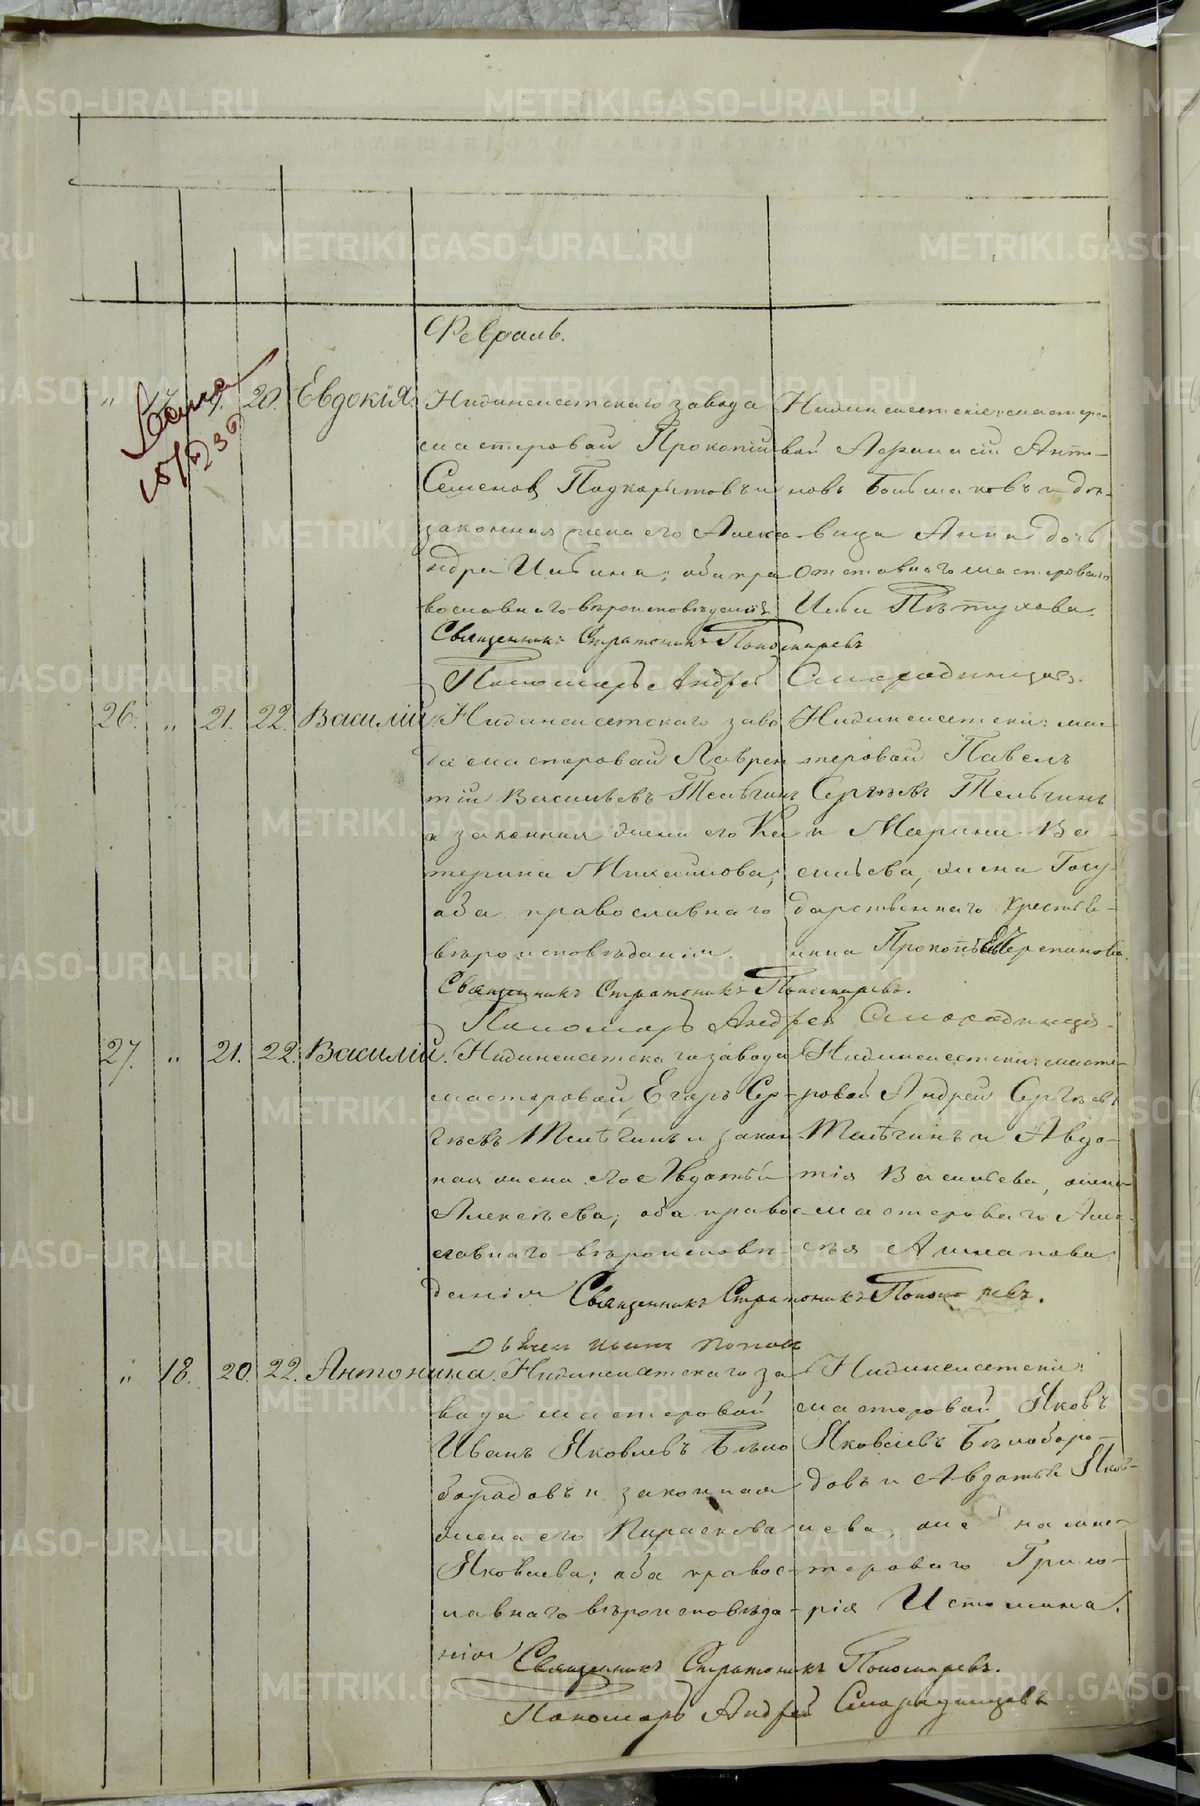 Февраль.
" 17. 20. Евдокія. Нижнеисетскаго завода
мастеровой Прокопій
Семенов
законная жена его Алекса-
ндра Ильина; оба пра-
вославнаго вѣроисповѣданія
Нижнеисетскіе: мастеро-
вой Афанасій Анти-
повъ Большаковъ и дѣ-
вица Анна дочь
отставнаго мастероваго
Ильи Пѣтухова.
Священникъ Стратоникъ Пономаревъ
Пономарь Андрей Смородинцовъ.
26. " 21. 22. Василій. Нижнеисетскаго заво-
да мастеровой Лаврен-
тій Васильевъ Телѣгинъ
и законная жена его Ка-
терина Михайлова;
оба православнаго
вѣроисповѣданія.
Нижнеисетскій: мас-
теровой Павелъ
Сергѣевъ Телѣгинъ
и Марина Ва-
сильева, жена Госу-
дарственнаго крестья-
нина Прокопья Черепанова.
Священникъ Стратоникъ Пономаревъ.
Пономарь Андрей Смородинцовъ
27. " 21. 22. Василій. Нижнеисетскаго завода
мастеровой Егоръ Сер-
гѣевъ Телѣгинъ и закон-
ная жена его Евдокія
Алексѣева; оба право-
славнаго вѣроисповѣ-
данія
Нижнеисетскій: масте-
ровой Андрей Сергѣевъ
Телѣгинъ и Авдо-
тія Васильева, жена
мастероваго
Священникъ Стратоникъ Пономаревъ.
" 18. 20. 22. Антонина. Нижнеисетскаго за-
вода мастеровой
Иванъ Яковлевъ Бѣло-
бородовъ и законная
жена его Параскева
Яковлева; оба правос-
лавнаго вѣроисповѣда-
нія
Нижнеисетскій:
мастеровой Яковъ
Яковлевъ Бѣлоборо-
довъ и Авдотья Яков-
лева, жена мас-
тероваго Григо-
рія Истомина.
Священникъ Стратоникъ Пономаревъ.
Пономарь Андрей Смородинцовъ
METRIKI.GASO-URAL.RU